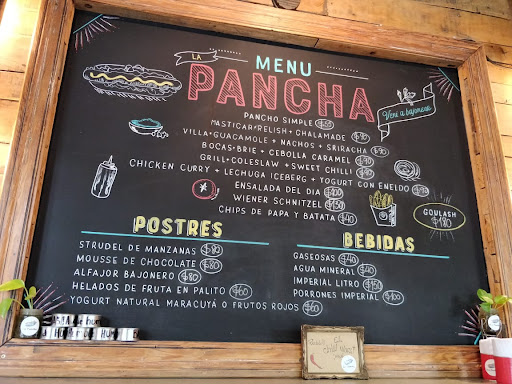 MENU
LA PANCHA
Vení a bajonear
PANCHO SIMPLE
MASTICAR•RELISH+CHALAMADE $90
VILLA•GUACAMOLE + NACHOS + SRIRACHA $90
BOCAS•BRIE + CEBOLLA CARAMEL $90
GRILL•COLESLAW + SWEET CHILLI $90
CHICKEN CURRY + LECHUGA ICEBERG + YOGURT CON ENELDO
ENSALADA DEL DIA
WIENER SCHNITZEL
CHIPS DE PAPA Y BATATA $40
GOULASH
$180
POSTRES
STRUDEL DE MANZANAS $80
MOUSSE DE CHOCOLATE $80
ALFAJOR BAJONERO $80
HELADOS DE FRUTA EN PALITO $60
YOGURT NATURAL MARACUYÁ O FRUTOS ROJOS $60
BEBIDAS
GASEOSAS $40
AGUA MINERAL $40
IMPERIAL LITRO $150
PORRONES IMPERIAL $100